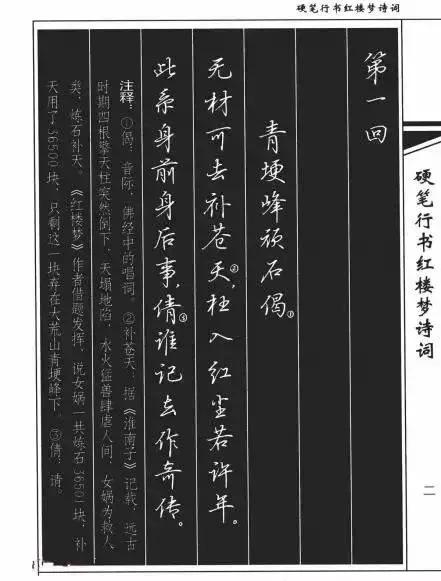 硬笔行书红楼梦诗词
硬笔行书红楼梦诗词
二
第一回
青埂峰顽石偈①
无材可去补苍天②，枉入红尘若许年。
此系身前身后事，倩③谁记去作奇传。
注释：①偈：音际，佛经中的唱词。②补苍天：据《淮南子》记载，远古
时期四根擎天柱突然倒下，天塌地陷，水火猛兽肆虐人间，女娲为救人
类，炼石补天。《红楼梦》作者借题发挥，说女娲一共炼石36501块，补
天用了36500块，只剩这一块弃在大荒山青埂峰下。③倩：请。